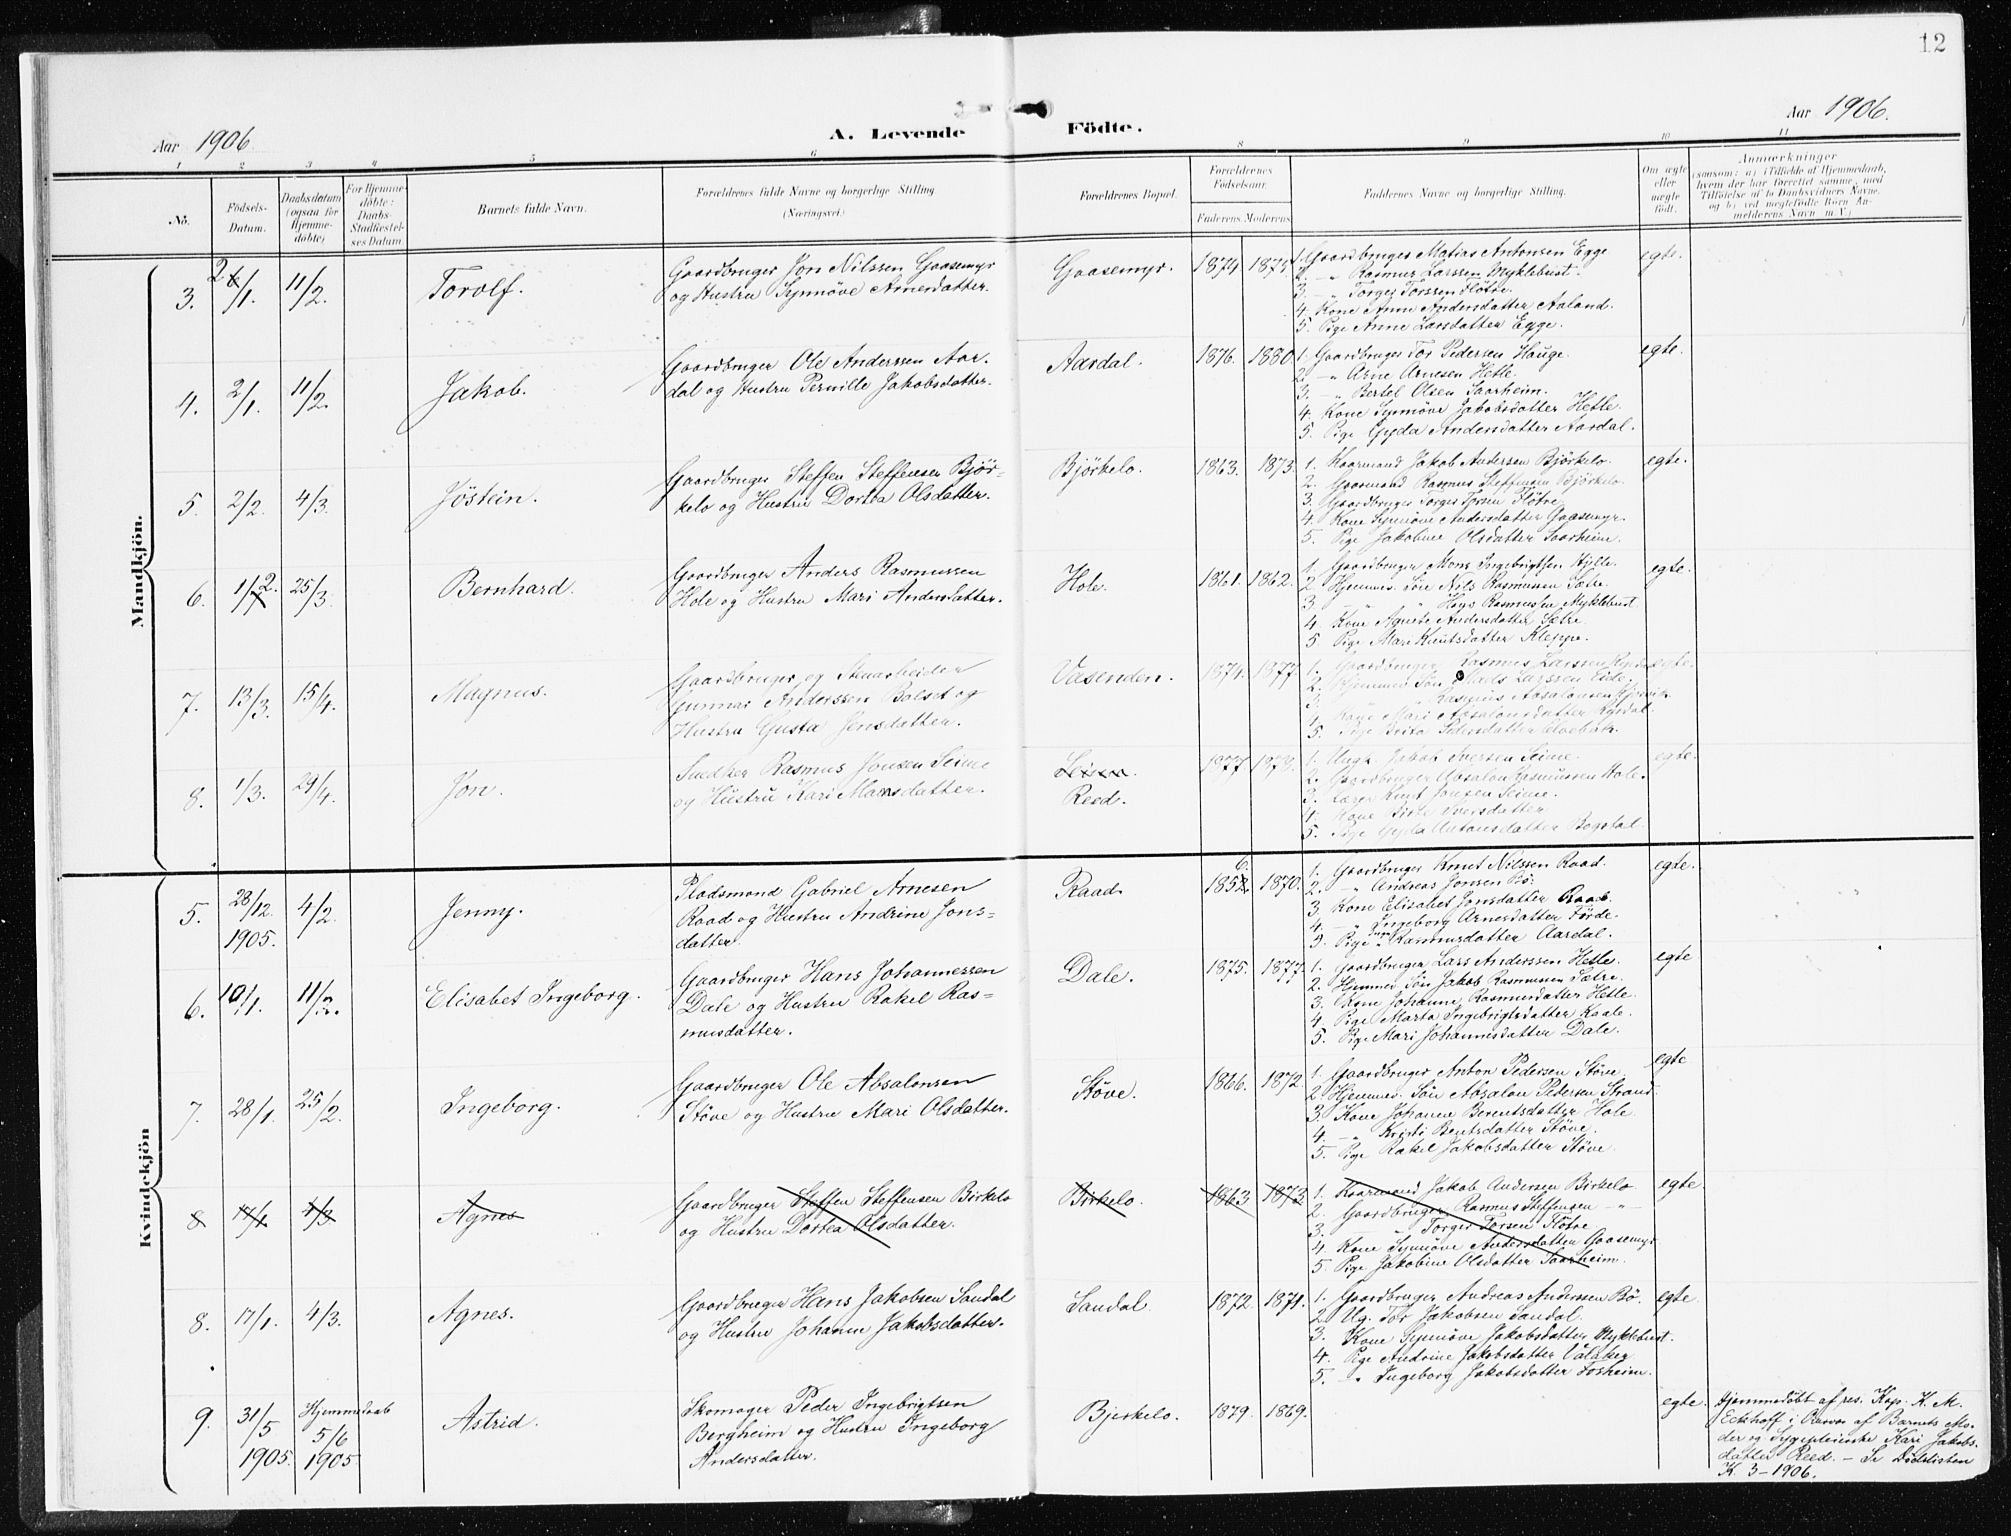 12
Aar 1906
A. Levende Födte.
Aar 1906.
1 2 3 4 5 6 8 9 10 11
No.
Födsels-Datum.
Daabsdatum (ogsaa for Hjemme-döbte)
For Hjemme-döbte: Daabs-Stadfæstel-ses Datum
Barnets fulde Navn.
Forældrenes fulde Navne og borgerlige Stilling (Næringsvei.)
Forældrenes Bopæl.
Forældrenes Födselsaar.
Faderens. Moderens.
Faddernes Navne og borgerlige Stilling.
Om ægte eller uægte födt.
Anmærkninger
(saasom: a) i Tilfælde af Hjemmedaab,
hvem der har forrettet samme, med
Tilföielse af to Daabsvidners Navne,
og b) ved uægtefödte Börn An-
melderens Navn m. V.)
Mandkjön.
3. 26/1. 11/2 Torolf.
Gaardbruger Jon Nilssen Gaasemyr
og Hustru Synnöve Arnesdatter.
Gaasemyr. 1874 1875
1. Gaardbruger Matias Antonsen Egge
2. -"- Rasmus Larssen Myklebust.
3. -"- Torger Torssen Flötre.
4. Kone Anne Andersdatter Aaland.
5. Pige Anne Larsdatter Egge.
egte.
4. 2/1. 11/2. Jakob.
Gaardbruger Ole Anderssen Aar-
dal og Hustru Pernille Jakobsdatter.
Aardal. 1876. 1880.
1. Gaardbruger Tor Pedersen Hauge.
2. -"- Arne Arnesen Hetle.
3. -"- Bertel Olsen Saarheim.
4. Kone Synnöve Jakobsdatter Hetle.
5. Pige Gyda Andersdatter Aardal.
egte.
5. 2/2. 4/3. Jöstein.
Gaardbruger Steffen Steffensen Björ-
kelo og Hustru Dortea Olsdatter.
Björkelo. 1863. 1873.
1. Kaarmand Jakob Andersen Björkelo.
2. Gaarmand Rasmus Steffensen Björkelo.
3. Gaardbruger Torger Torsen Flötre.
4. Kone Synnöve Andersdatter Gaasemyr.
5. Pige Jakobine Olsdatter Saarheim.
egte.
6. 1/2. 25/3. Bernhard.
Gaardbruger Anders Rasmussen
Hole og Hustru Mari Andersdatter.
Hole. 1861. 1862.
1. Gaardbruger Mons Ingebrigtsen Hjelle.
2 Hjemmev. Sön Nils Rasmussen Sætre.
3 -"- Hans Rasmussen Myklebust.
4. Kone Agnete Andersdatter Sætre.
5. Pige Mari Knutsdatter Kleppe.
egte.
7. 13/3. 15/4. Magnus.
Gaardbruger og Stenarbeider
Gunnar Anderssen Bolset og
Hustru Gusta Jensdatter.
Vasenden. 1874. 1877.
1. Gaardbruger Rasmus Larssen
2. Hjemmev. Sön Mads Larssen Eide.
3. Rasmus Absalonsen
4. Kone Mari Absalonsdatter
5. Pige Brita Pedersdatter
egte.
8. 1/3. 29/4. Jon.
Snedker Rasmus Jonsen Seime
og Hustru Kari Monsdatter.
Reed. 1877. 1878.
1. Ungk. Jakob Iversen Seime.
2. Gaardbruger Absalon Rasmussen Hole.
3. Lærer Knut Jonsen Seime.
4. Kone Birte Iversdatter
5. Pige Gyda Antonsdatter Bogstal.
egte.
Kvindekjön
5. 28/12. 1905. 4/2. Jenny.
Pladsmand Gabriel Arnesen
Raad og Hustru Andrine Jons-
datter.
Raad. 1856. 1870.
1. Gaardbruger Knut Nilssen Raad.
2. -"- Andreas Jonsen Bö.
3. Kone Elisabet Jonsdatter Raad.
4. -"- Ingeborg Arnesdatter Förde.
5. Pige Inga Rasmusdatter Aardal.
egte.
6. 10/1. 11/3. Elisabet Ingeborg.
Gaardbruger Hans Johannessen
Dale og Hustru Rakel Ras-
musdatter.
Dale. 1875. 1877.
1. Gaardbruger Lars Anderssen Hetle.
2. Hjemmev. Sön Jakob Rasmussen Sætre.
3. Kone Johanne Rasmusdatter Hetle.
4. Pige Marta Ingebrigtsdatter Kaale.
5. Pige Mari Johannesdatter Dale.
egte
7. 28/1. 25/2. Ingeborg.
Gaardbruger Ole Absalonsen
Stöve og Hustru Mari Olsdatter.
Stöve. 1866. 1872.
1. Gaardbruger Anton Pedersen Stöve
2. Hjemmev. Sön Absalon Pedersen Strand.
3. Kone Johanne Berentsdatter Hole.
4. -"- Kristi Bentsdatter Stöve.
5. Pige Rakel Jakobsdatter Stöve.
egte
8 14/1 4/3 Agnes
Gaardbruger Steffen Steffensen Birkelo
og Hustru Dortea Olsdatter.
Birkelo. 1863 1873
1. Kaarmand Jakob Andersen Birkelo
2. Gaardbruger Rasmus Steffensen -"-
3. " Torger Torsen Flötre
4. Kone Synnöve Andersdatter Gaasemyr
5. Pige Jakobine Olsdatter Saarheim.
egte.
8. 17/1. 4/3. Agnes.
Gaardbruger Hans Jakobsen Sandal
og Hustru Johanne Jakobsdatter.
Sandal. 1872. 1871.
1. Gaardbruger Andreas Anderssen Bö.
2. Ug. Tor Jakobsen Sandal.
3. Kone Synnöve Jakobsdatter Myklebust.
4. Pige Andrine Jakobsdatter
5. -"- Ingeborg Jakobsdatter Fosheim.
egte.
9. 31/5 1905. Hjemmedaab 5/6 1905 Astrid.
Skomager Peder Ingebrigtsen
Bergheim og Hustru Ingeborg
Andersdatter.
Bjerkelo. 1879. 1869.
egte.
Hjemmedöbt af res. Kap. K. M.
Eckhoff i Overvær af Barnets Mo-
der og Sygepleierske Kari Jakobs-
datter Reed. — Se Dödslisten
K. 3 - 1906.